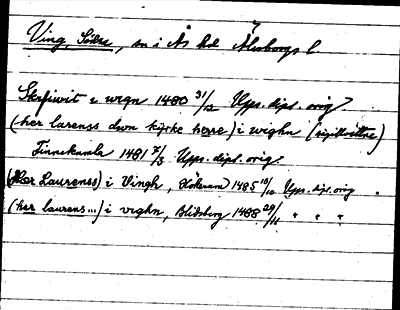 Ving, Södra, sn i Ås hd Älvsborgs l.
Skrifuit i wegn 1480 31/12 Upps. dipl. orig.
(her larenss dwn kyrke herre) i weghn (sigillvittne)
Finnekumla 1481 3/3 Upps. dipl. orig.
(Her Laurenss) i Vingh, 1485 10/10 Upps. dipl. orig.
(her laurens...) i veghn, Blidsberg 1488 29/11 " " "